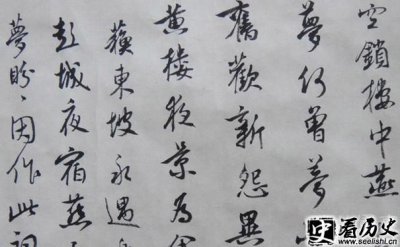 空鎖樓中燕
夢何曾夢
舊歡新怨異
黃樓夜景為
蘇東坡永遇
彭城夜宿燕
夢盼々因作此詞
看历史
www.seelishi.cn